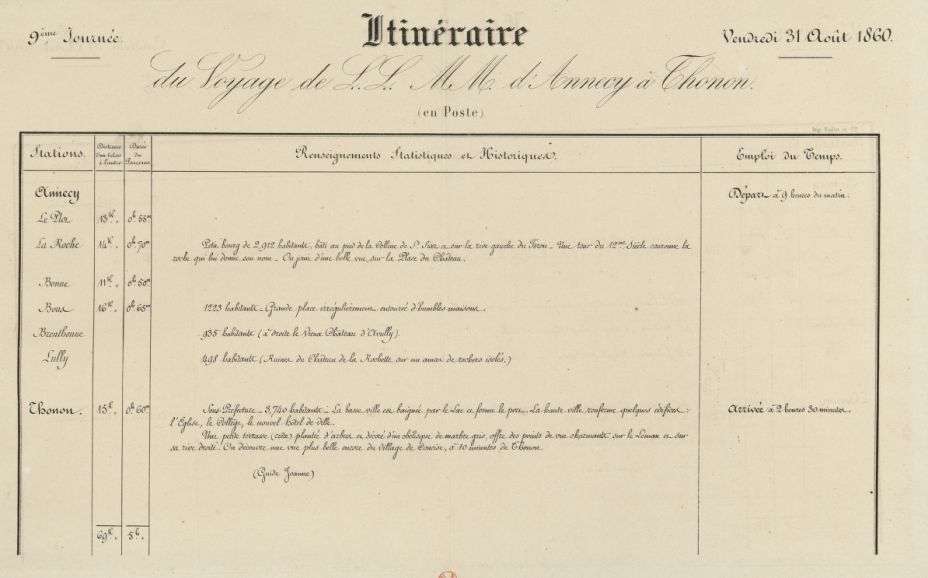 9ème Journée.
Itinéraire
Vendredi 31 Août 1860.
du Voyage de L.L. M.M. d'Annecy à Thonon.
(en Poste)
Stations.
Distance d'un Relais à l'autre
Durée du Parcours
Renseignements Statistiques et Historiques.
Emploi du Temps.
Annecy Départ à 9 heures du matin.
Le Plot 13K. 0h 55m
La Roche 14K. 0h 70m Petit bourg de 2,912 habitants, bâti au pied de la Colline de St Sixt et sur la rive gauche du Foron _ Une tour du 12me Siècle couronne la
roche qui lui donne son nom _ On jouit d'une belle vue, sur la Place du Château.
Bonne 11K. 0h 50m
Bons 16K. 0h 65m 1223 habitants _ Grande place irrégulièrement entourée d'humbles maisons.
Brenthonne 935 habitants (à droite le Vieux Château d'Avully).
Lully 498 habitants (Ruines du Château de la Rochette, sur un amas de rochers isolés.)
Thonon. 15K. 0h 60m Sous-Préfecture _ 3,740 habitants _ La basse ville est baignée par le Lac et forme le port _ La haute ville renferme quelques édifices : Arrivée à 2 heures 30 minutes.
l'Église, le Collège, le nouvel hôtel de ville.
Une petite terrasse (crête) planté d'arbres et décoré d'un obélisque de marbre gris, offre des points de vue charmants sur le Léman et sur
sa rive droite. On découvre une vue plus belle encore du village de Concise, à 10 minutes de Thonon.
(Guide Joanne)
69K. 5h.